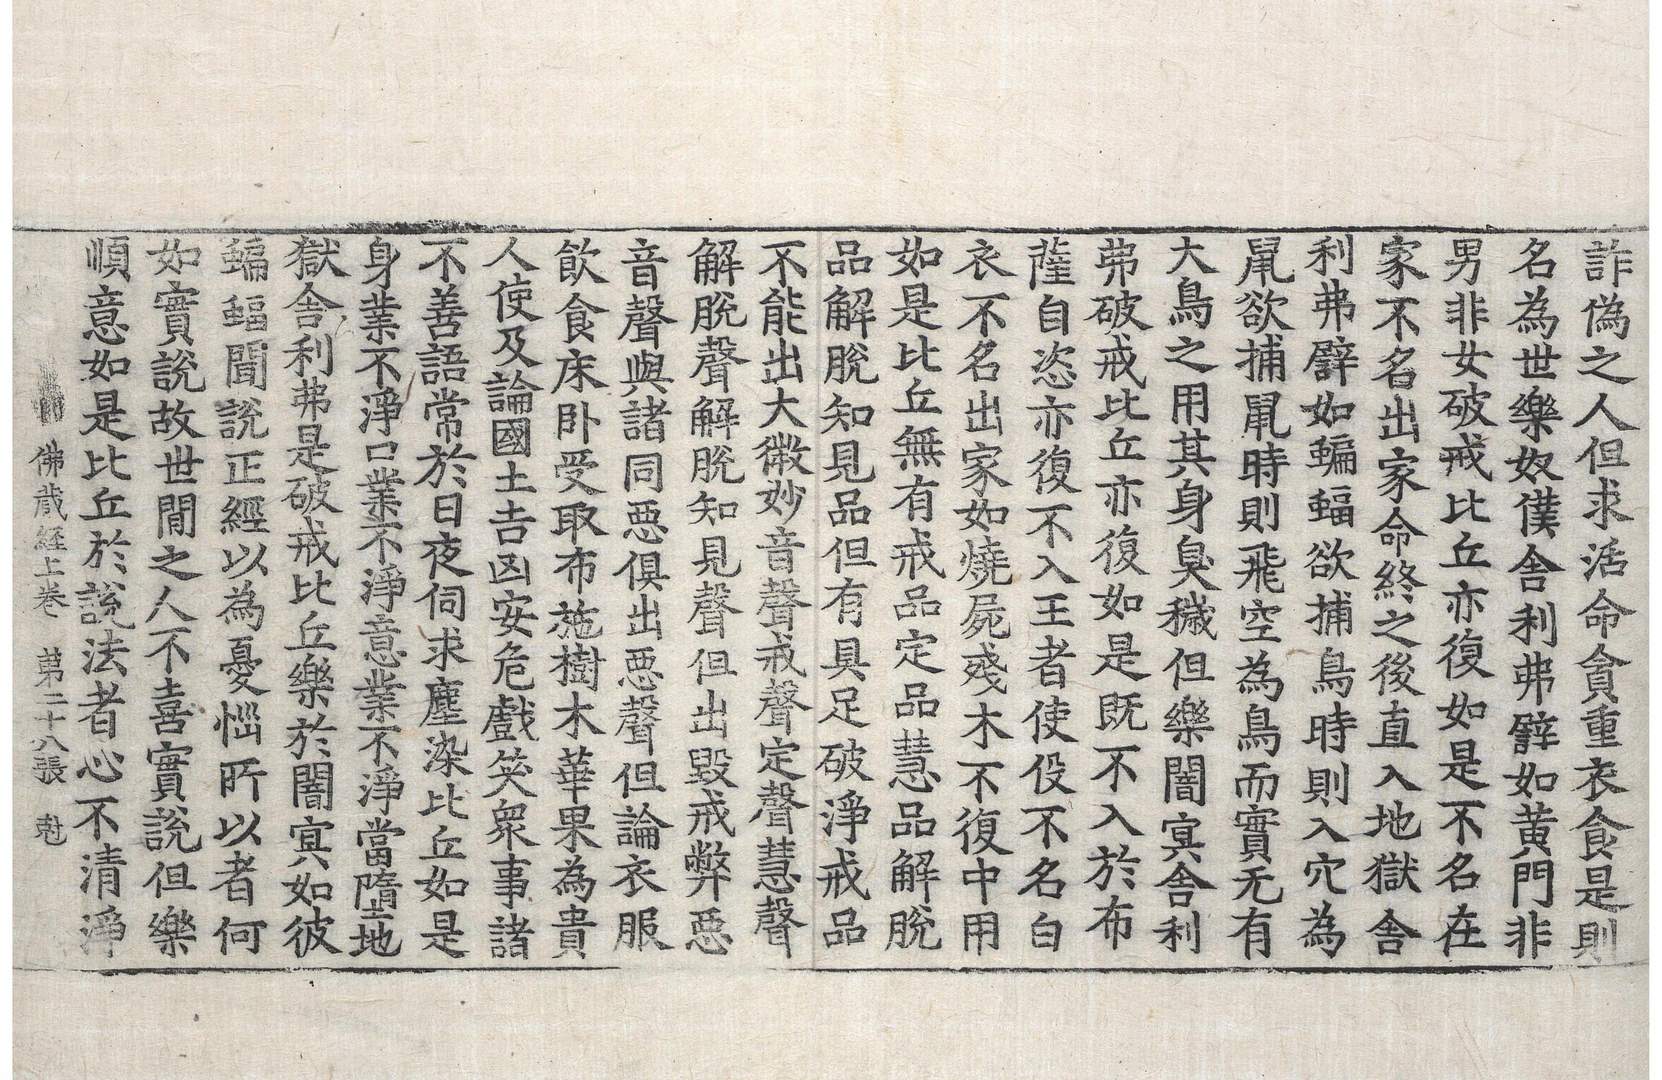 詐偽之人但求活命貪重衣食是則
名為世樂奴僕舍利弗譬如黄門非
男非女破戒比丘亦復如是不名在
家不名出家命終之後直入地獄舍
利弗譬如蝙蝠欲捕鳥時則入穴為
鼠欲捕鼠時則飛空為鳥而實无有
大鳥之用其身臭穢但樂闇冥舍利
弗破戒比丘亦復如是既不入於布
薩自恣亦復不入王者使役不名白
衣不名出家如燒屍殘木不復中用
如是比丘無有戒品定品慧品解脫
品解脫知見品但有具足破淨戒品
不能出大微妙音聲戒聲定聲慧聲
解脫聲解脫知見聲但出毀戒弊惡
音聲與諸同惡俱出惡聲但論衣服
飲食床卧受取布施樹木華果為貴
人使及論國土吉凶安危戲笑衆事諸
不善語常於日夜伺求塵染比丘如是
身業不淨口業不淨意業不淨當墮地
獄舍利弗是破戒比丘樂於闇冥如彼
蝙蝠聞說正經以為憂惱所以者何
如實說故世間之人不喜實說但樂
順意如是比丘於說法者心不清淨
佛藏經上卷 第二十八張 尅